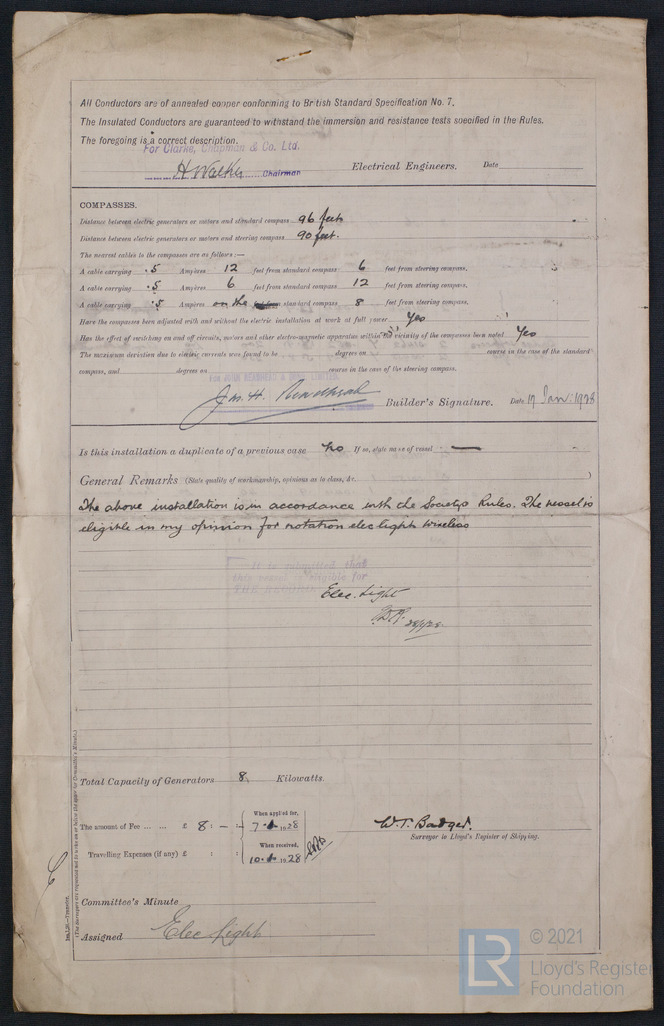 All Conductors are of annealed copper conforming to British Standard Specification No. 7.
The Insulated Conductors are guaranteed to withstand the immersion and resistance tests specified in the Rules.
The foregoing is a correct description.
For Clarke, Chapman & Co. Ltd.
H Walker Chairman Electrical Engineers. Date
COMPASSES.
Distance between electric generators or motors and standard compass 96 feet
Distance between electric generators or motors and steering compass 90 feet.
The nearest cables to the compasses are as follows:—
A cable carrying .5 Ampères 12 feet from standard compass 6 feet from steering compass.
A cable carrying .5 Ampères 6 feet from standard compass 12 feet from steering compass.
A cable carrying .5 Ampères on the standard compass 8 feet from steering compass.
Have the compasses been adjusted with and without the electric installation at work at full power Yes
Has the effect of switching on and off circuits, motors and other electro-magnetic apparatus within the vicinity of the compasses been noted Yes
The maximum deviation due to electric currents was found to be degrees on course in the case of the standard
compass, and degrees on course in the case of the steering compass.
FOR JOHN READHEAD & SONS LIMITED
Jas. H. Readhead Builder's Signature. Date 17 Jan: 1928
Is this installation a duplicate of a previous case No If so, state name of vessel —
General Remarks (State quality of workmanship, opinions as to class, &c. )
The above installation is in accordance with the Society's Rules. The vessel is
eligible in my opinion for notation elec light wireless
It is submitted that
this vessel is eligible for
THE RECORD
Elec. Light
Total Capacity of Generators 8 Kilowatts.
The amount of Fee ... ... £ 8 : — : —
When applied for,
7.1.1928
Travelling Expenses (if any) £ : :
When received,
10.1.1928
W.T. Badger.
Surveyor to Lloyd's Register of Shipping.
Committee's Minute
Assigned Elec Light
(The Surveyors are requested not to write on or below the space for Committee's Minute.)
LR © 2021
Lloyd's Register
Foundation